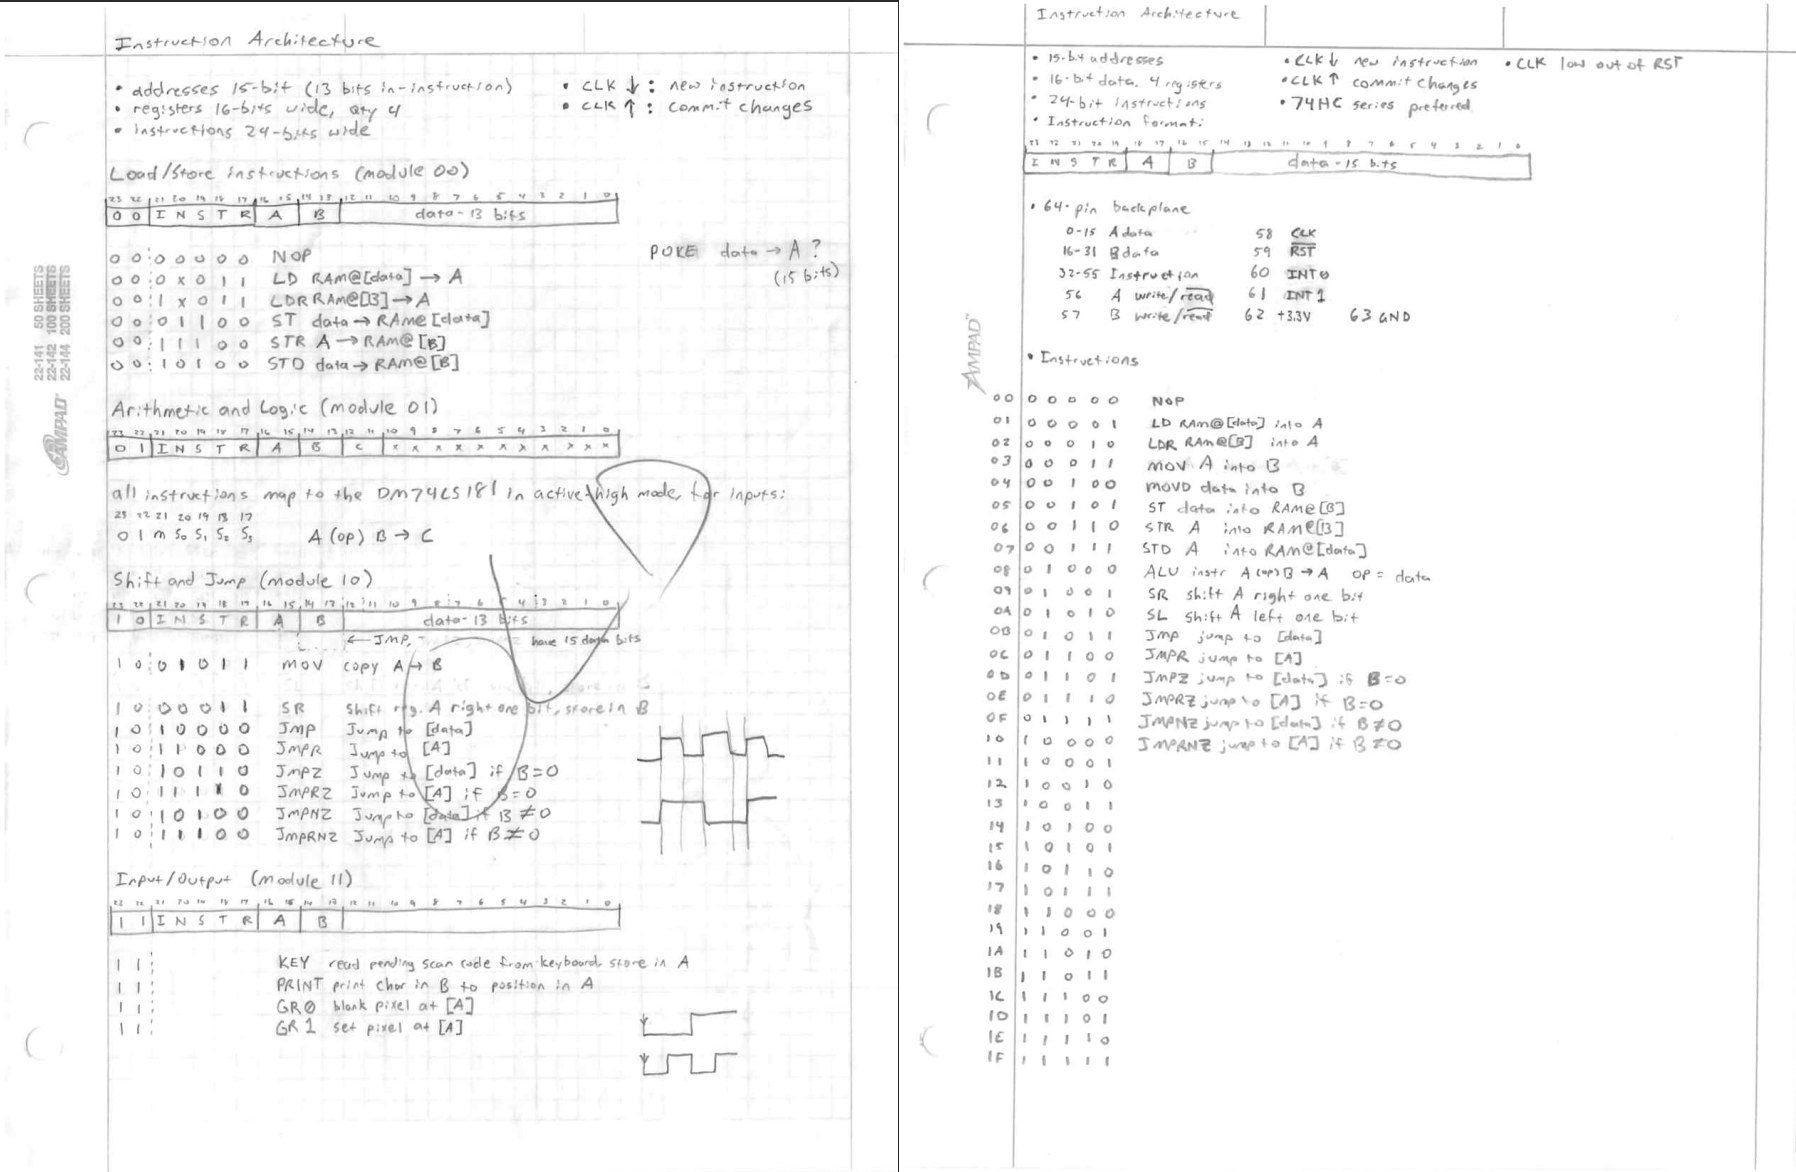 Instruction Architecture
• addresses 15-bit (13 bits in-instruction)
• registers 16-bits wide, qty 4
• instructions 24-bits wide
• CLK ↓: new instruction
• CLK ↑: commit changes
Load/Store instructions (module 00)
23 22 21 20 19 18 17 16 15 14 13 12 11 10 9 8 7 6 5 4 3 2 1 0
0 0 I N S T R A B data-13 bits
0 0 0 0 0 0 0 NOP
0 0 0 x 0 1 1 LD RAM@[data] → A
0 0 1 x 0 1 1 LDR RAM@[B] → A
0 0 0 1 1 0 0 ST data → RAM@[data]
0 0 1 1 1 0 0 STR A → RAM@[B]
0 0 1 0 1 0 0 STD data → RAM@[B]
POKE data → A ?
(15 bits)
22-141 50 SHEETS
22-142 100 SHEETS
22-144 200 SHEETS
AMPAD
Arithmetic and Logic (module 01)
23 22 21 20 19 18 17 16 15 14 13 12 11 10 9 8 7 6 5 4 3 2 1 0
0 1 I N S T R A B C x x x x x x x x x x x
all instructions map to the DM74LS181 in active high mode, for inputs:
23 22 21 20 19 18 17
0 1 m S0 S1 S2 S3 A (op) B → C
Shift and Jump (module 10)
23 22 21 20 19 18 17 16 15 14 13 12 11 10 9 8 7 6 5 4 3 2 1 0
1 0 I N S T R A B data-13 bits
← JMP, - have 15 data bits
1 0 0 1 0 1 1 MOV copy A → B
1 0 0 0 0 1 1 SR Shift reg. A right one bit, store in B
1 0 1 0 0 0 0 JMP Jump to [data]
1 0 1 1 0 0 0 JMPR Jump to [A]
1 0 1 0 1 1 0 JMPZ Jump to [data] if B=0
1 0 1 1 1 1 0 JMPRZ Jump to [A] if B=0
1 0 1 0 1 0 0 JMPNZ Jump to [data] if B≠0
1 0 1 1 1 0 0 JMPRNZ Jump to [A] if B≠0
Input/Output (module 11)
23 22 21 20 19 18 17 16 15 14 13 12 11 10 9 8 7 6 5 4 3 2 1 0
1 1 I N S T R A B
1 1 KEY read pending scan code from keyboard, store in A
1 1 PRINT print char in B to position in A
1 1 GR0 blank pixel at [A]
1 1 GR1 set pixel at [A]
Instruction Architecture
• 15-bit addresses
• 16-bit data, 4 registers
• 24-bit instructions
• Instruction format:
• CLK ↓ new instruction
• CLK ↑ commit changes
• 74HC series preferred
• CLK low out of RST
23 22 21 20 19 18 17 16 15 14 13 12 11 10 9 8 7 6 5 4 3 2 1 0
I N S T R A B data-15 bits
• 64-pin backplane
0-15 A data 58 CLK
16-31 B data 59 RST
32-55 Instruction 60 INT0
56 A write/read 61 INT1
57 B write/read 62 +3.3V 63 GND
AMPAD
• Instructions
00 0 0 0 0 0 NOP
01 0 0 0 0 1 LD RAM@[data] into A
02 0 0 0 1 0 LDR RAM@[B] into A
03 0 0 0 1 1 MOV A into B
04 0 0 1 0 0 MOVD data into B
05 0 0 1 0 1 ST data into RAM@[B]
06 0 0 1 1 0 STR A into RAM@[B]
07 0 0 1 1 1 STD A into RAM@[data]
08 0 1 0 0 0 ALU instr A(op)B → A OP = data
09 0 1 0 0 1 SR shift A right one bit
0A 0 1 0 1 0 SL shift A left one bit
0B 0 1 0 1 1 JMP jump to [data]
0C 0 1 1 0 0 JMPR jump to [A]
0D 0 1 1 0 1 JMPZ jump to [data] if B=0
0E 0 1 1 1 0 JMPRZ jump to [A] if B=0
0F 0 1 1 1 1 JMPNZ jump to [data] if B≠0
10 1 0 0 0 0 JMPRNZ jump to [A] if B≠0
11 1 0 0 0 1
12 1 0 0 1 0
13 1 0 0 1 1
14 1 0 1 0 0
15 1 0 1 0 1
16 1 0 1 1 0
17 1 0 1 1 1
18 1 1 0 0 0
19 1 1 0 0 1
1A 1 1 0 1 0
1B 1 1 0 1 1
1C 1 1 1 0 0
1D 1 1 1 0 1
1E 1 1 1 1 0
1F 1 1 1 1 1